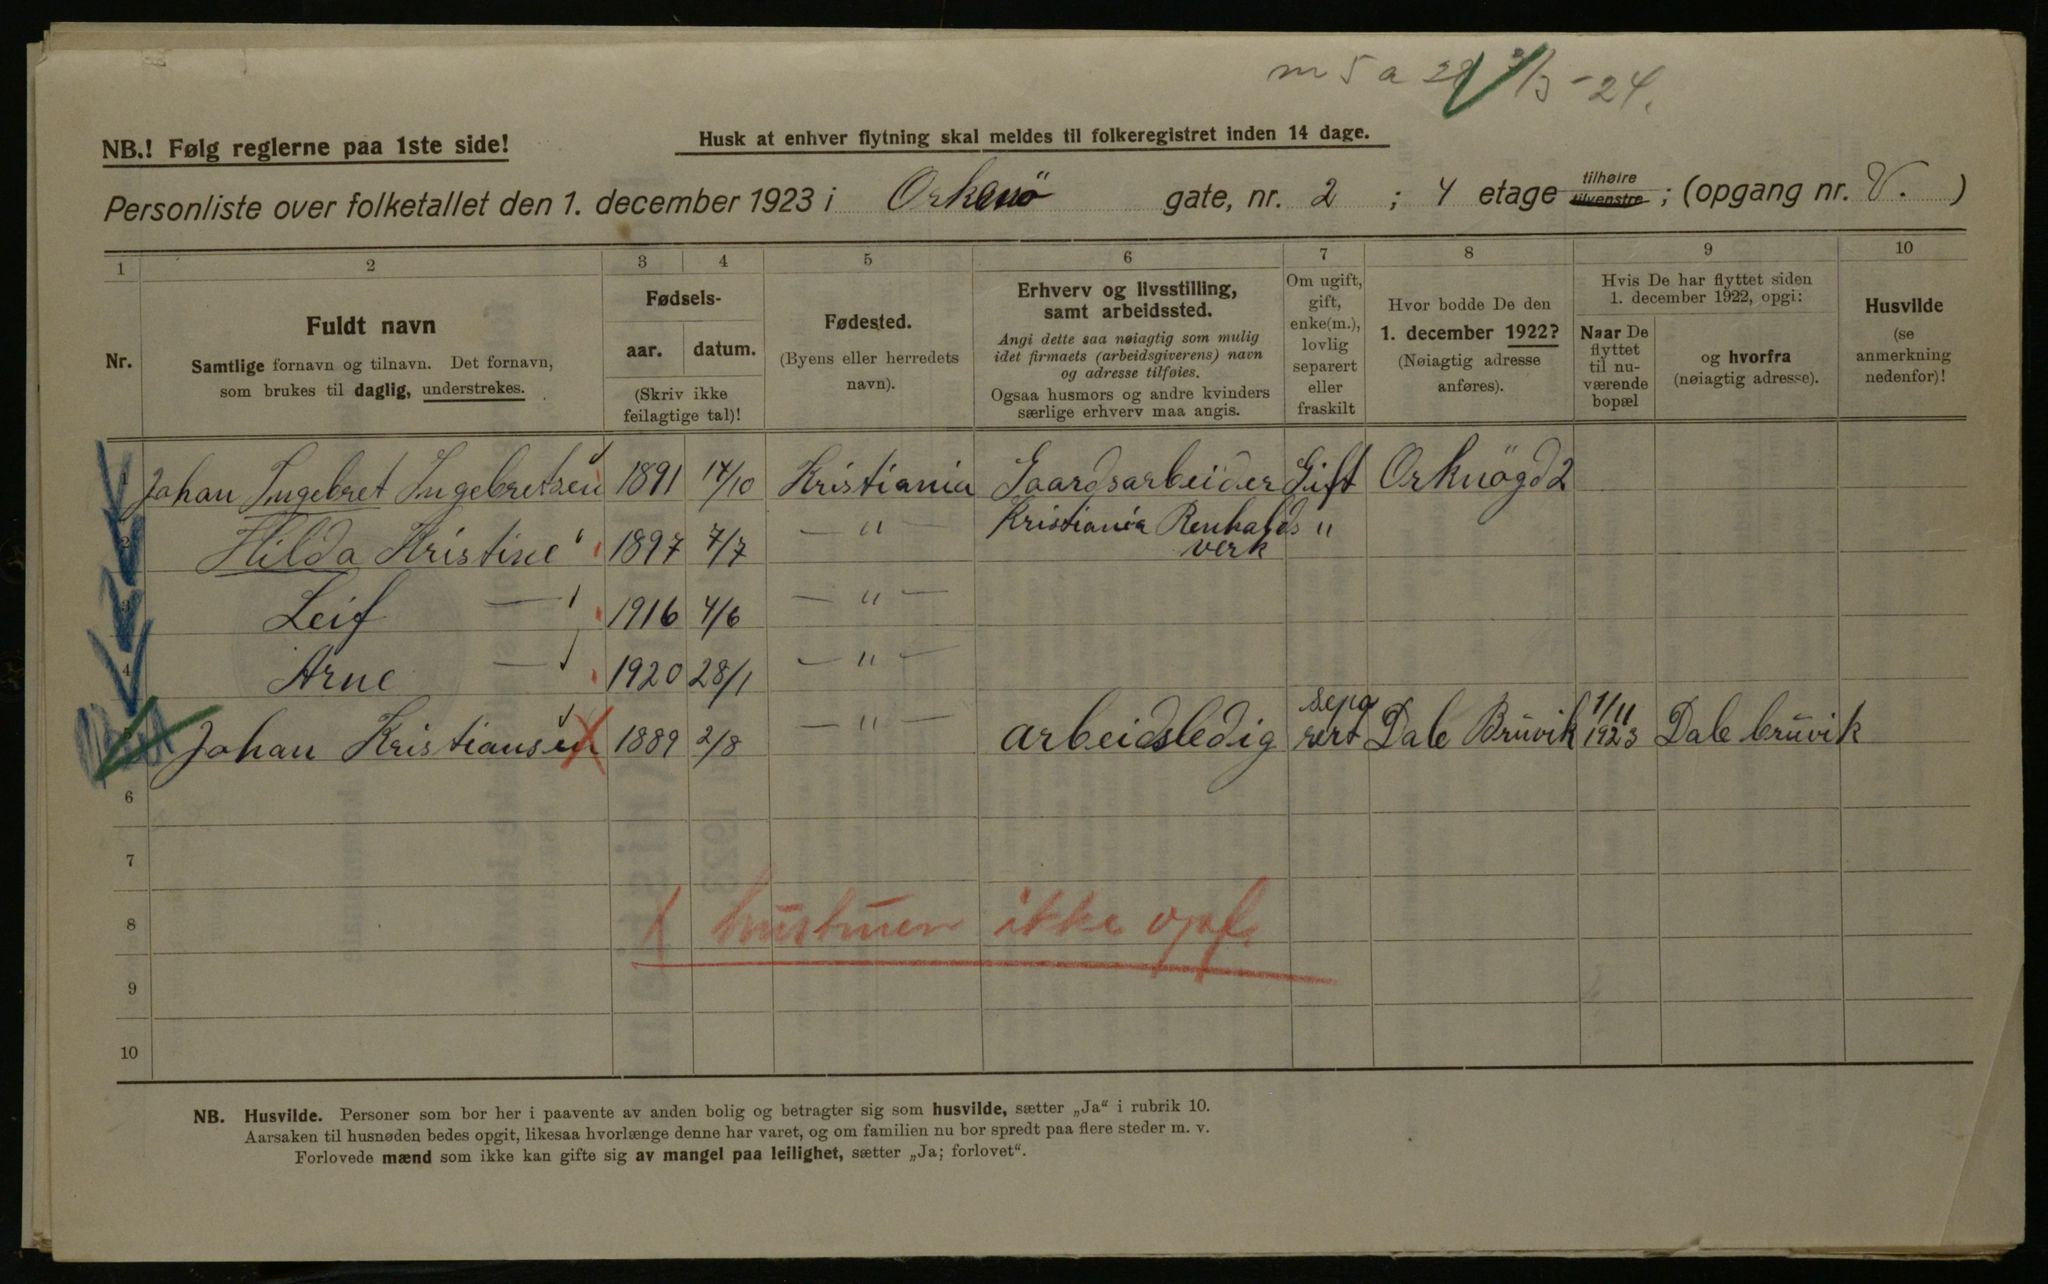 m 5 a 28 3/3 - 24.
NB.! Følg reglerne paa 1ste side!
Husk at enhver flytning skal meldes til folkeregistret inden 14 dage.
Personliste over folketallet den 1. december 1923 i Orkenö gate, nr. 2 ; 4 etage tilhøire tilvenstre ; (opgang nr. V. )
1 2 3 4 5 6 7 8 9 10
Nr.
Fuldt navn
Samtlige fornavn og tilnavn. Det fornavn,
som brukes til daglig, understrekes.
Fødsels-
aar. datum.
(Skriv ikke
feilagtige tal)!
Fødested.
(Byens eller herredets
navn).
Erhverv og livsstilling,
samt arbeidssted.
Angi dette saa nøiagtig som mulig
idet firmaets (arbeidsgiverens) navn
og adresse tilføies.
Ogsaa husmors og andre kvinders
særlige erhverv maa angis.
Om ugift,
gift,
enke(m.),
lovlig
separert
eller
fraskilt
Hvor bodde De den
1. december 1922?
(Nøiagtig adresse
anføres).
Hvis De har flyttet siden
1. december 1922, opgi:
Naar De
flyttet
til nu-
værende
bopæl
og hvorfra
(nøiagtig adresse).
Husvilde
(se
anmerkning
nedenfor)!
1 Johan Ingebret Ingebretsen 1891 17/10 Kristiania Gaardsarbeider Gift Orknögd 2
2 Hilda Kristine " 1897 7/7 — " — Kristiania Renholds "
verk
3 Leif — " 1916 4/6 — " —
4 Arne — " 1920 28/1 — " —
5 Johan Kristiansen X 1889 2/8 — " — arbeidsledig sepa Dale Brüvik 1/11 Dale brüvik
rert 1923
6
7
8 X hustruen ikke opf.
9
10
NB. Husvilde. Personer som bor her i paavente av anden bolig og betragter sig som husvilde, sætter „Ja“ i rubrik 10.
Aarsaken til husnøden bedes opgit, likesaa hvorlænge denne har varet, og om familien nu bor spredt paa flere steder m. v.
Forlovede mænd som ikke kan gifte sig av mangel paa leilighet, sætter „Ja; forlovet“.